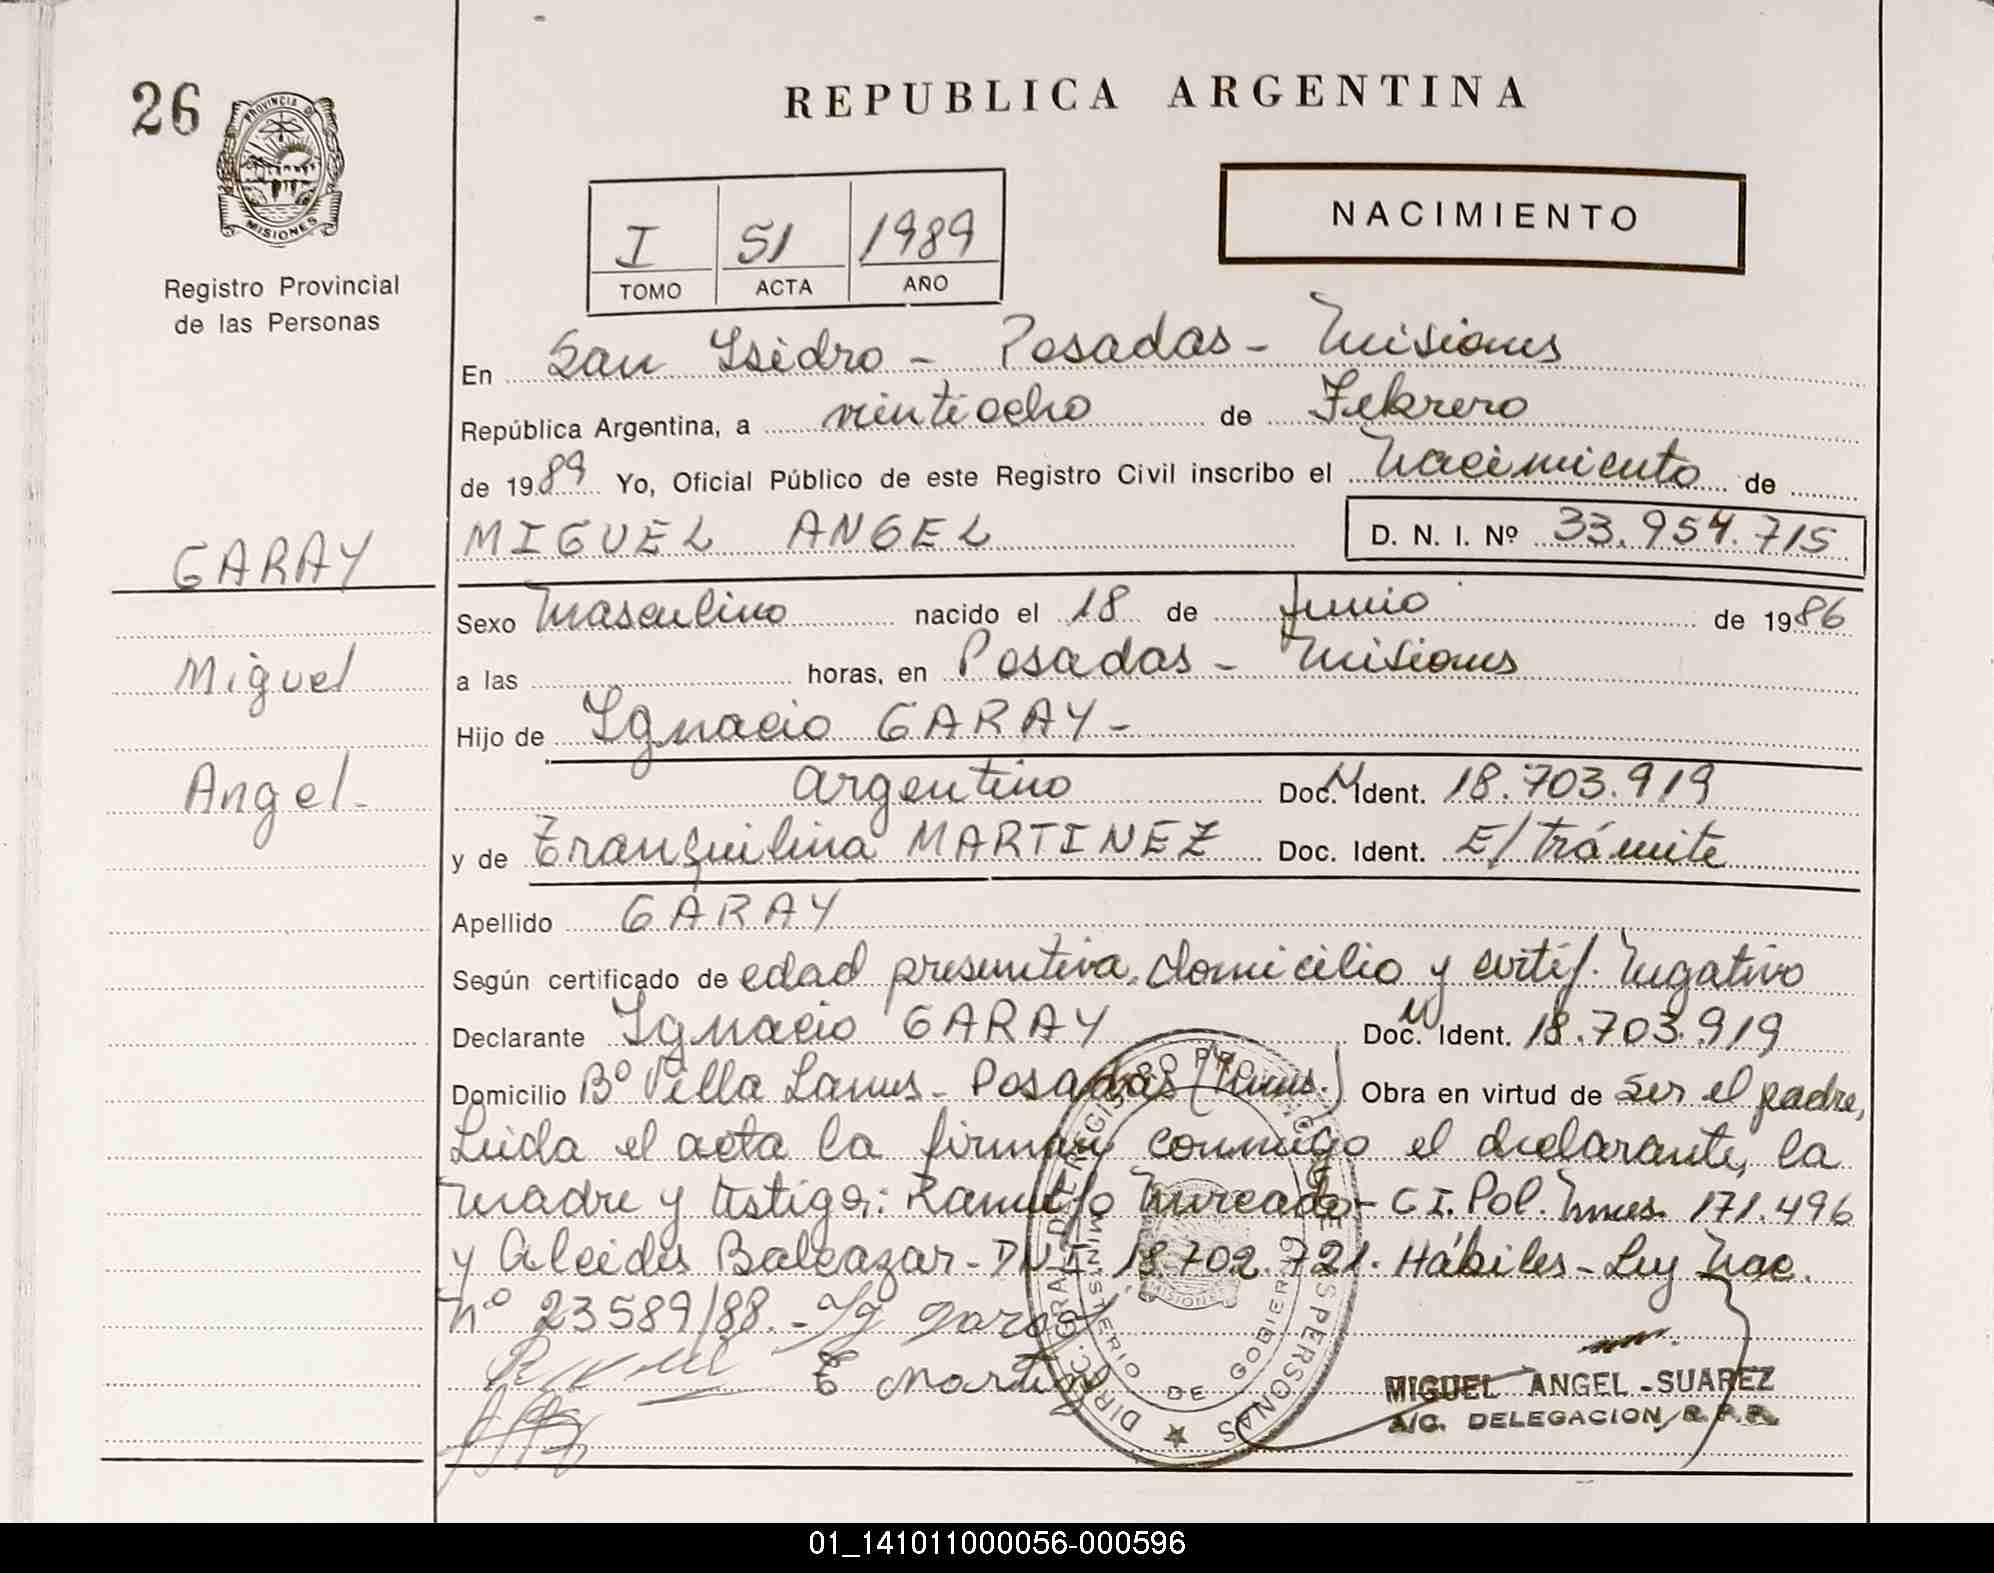 26
PROVINCIA D
MISIONES
Registro Provincial
de las Personas
REPUBLICA ARGENTINA
I 51 1989
TOMO ACTA AÑO
NACIMIENTO
En San Isidro - Posadas - Misiones
República Argentina, a veintiocho de Febrero
de 1989 Yo, Oficial Público de este Registro Civil inscribo el Nacimiento de
GARAY
MIGUEL ANGEL D. N. I. Nº 33.954.715
Sexo Masculino nacido el 18 de Junio de 1986
Miguel
a las horas, en Posadas - Misiones
Hijo de Ignacio GARAY -
Angel.-
argentino Doc. M Ident. 18.703.919
y de Tranquilina MARTINEZ Doc. Ident. E/ trámite
Apellido GARAY
Según certificado de edad presuntiva, domicilio y certif. Negativo
Declarante Ignacio GARAY Doc. M Ident. 18.703.919
Domicilio Bº Villa Lanus - Posadas (Mnes.) Obra en virtud de ser el padre,
Leida el acta la firman conmigo el declarante, la
madre y testigos: Mercado - C.I. Pol. Mnes. 171.496
y Alcides Balcazar - DNI. 18.702.721. Hábiles - Ley Nac.
Nº 23589/88. - Ig garay
E Martinez
DIRC. GRAL. DE REGISTRO PROVINCIAL DE LAS PERSONAS
MINISTERIO DE GOBIERNO
MISIONES
MIGUEL ANGEL SUAREZ
A/C. DELEGACION R.P.P.
01_141011000056-000596